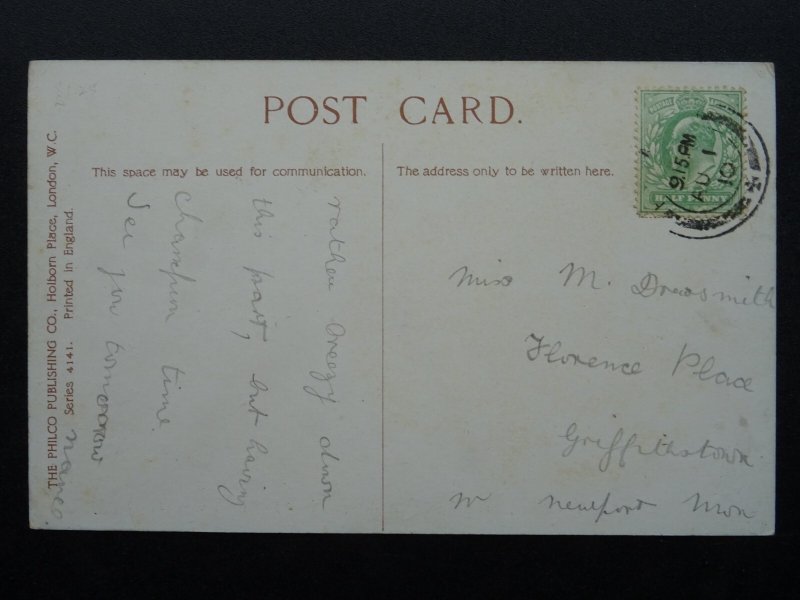 POST CARD.
This space may be used for communication.
The address only to be written here.
THE PHILCO PUBLISHING CO., Holborn Place, London, W.C.
Series 4141. Printed in England.
POSTAGE
HALF PENNY
9.15 PM
AU 1
10
rather breezy down
this part, but having
champion time.
See you tomorrow
Miss M. Drewsmith
Florence Place
Griffithstown
Nr Newport Mon